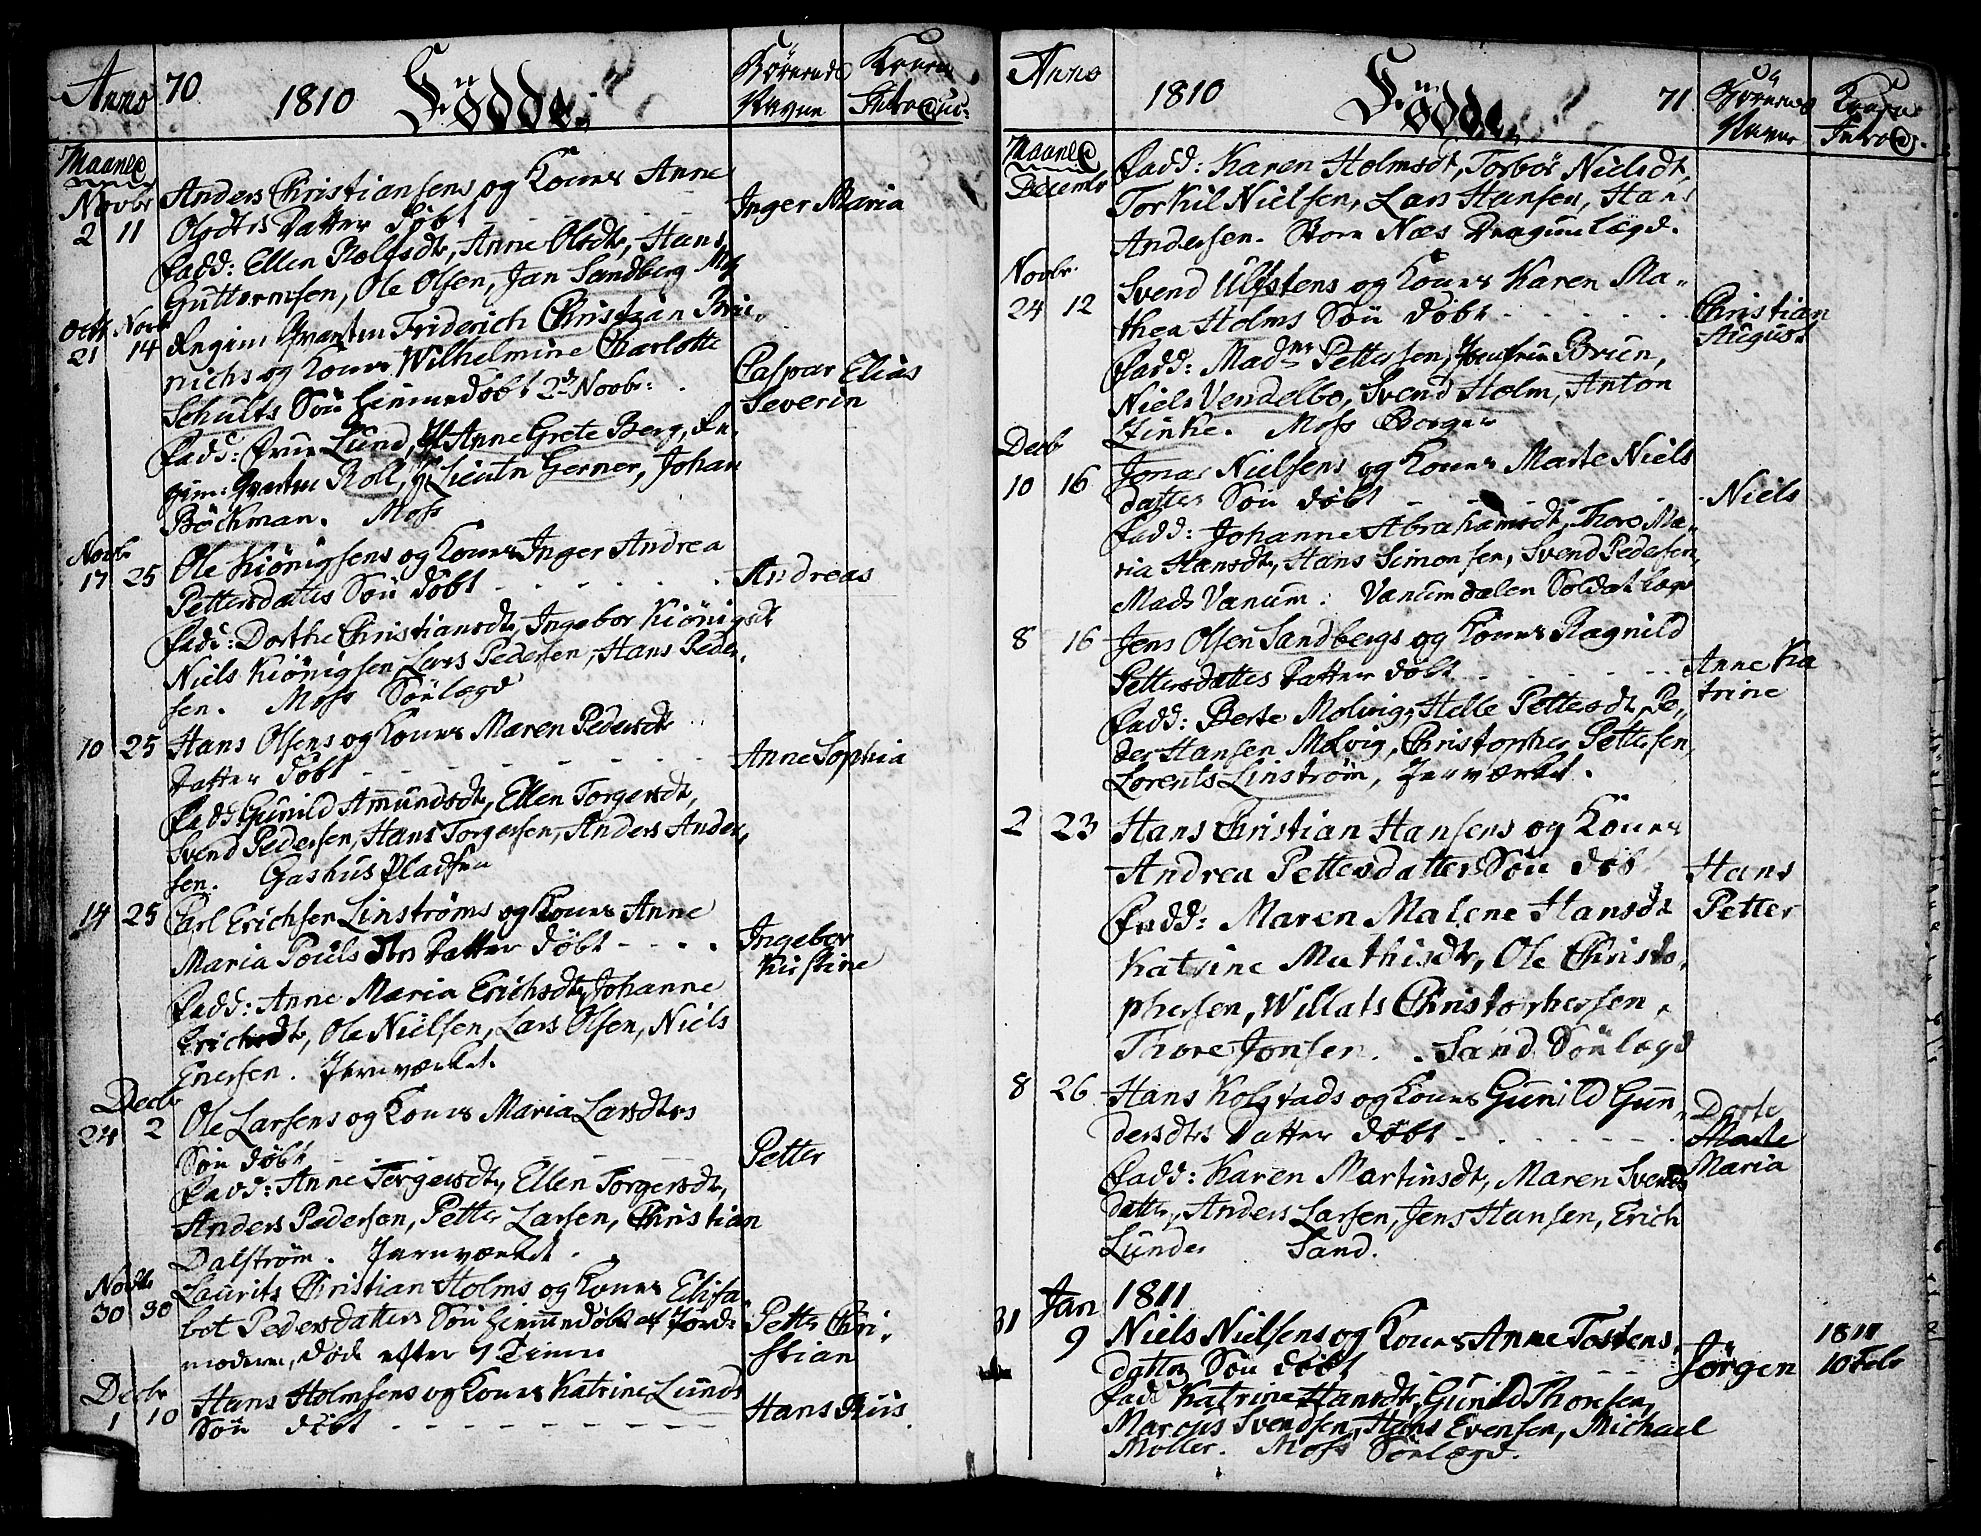 Anno 70 1810 Födde. Börnenes Navne Konens Introduc:
Maanet
Novbr
2 11 Anders Christiansens og Kones Anne Inger Maria
Olsdtrs Datter Döbt
Fadd: Ellen Rolfsdtr, Anne Olsdtr, Hans
Guttormsen, Ole Olsen, Jan Sandberg Mos
Octb Novb
21 14 Regim Qvarten Friderich Christian Brie-
nichs og Kones Wilhelmine Charlotte Caspar Elias
Schults Sön hiemmedöbt 2de Novbr: Severin
Fadd: Frue Lund, Anne Grete Berg, Re-
gim: Qvarten Roll, Lieutn Gerner, Johan
Böckman. Moss
Novbr
17 25 Ole Kiönigsens og Kones Inger Andrea
Pettersdatters Sön döbt Andreas
Fadd: Dorthe Christiansdt, Ingebor Kiönigsdt
Niels Kiönigsen, Lars Pedersen, Hans Peder-
sen. Moss Sölægd
10 25 Hans Olsens og Kones Maren Pedersdt
Datter döbt Anne Sophia
Fadd Gunild Amundsdt, Ellen Torgersdt,
Svend Pedersen, Hans Torgersen, Anders Ander-
sen. Gashus Pladsen
14 25 Carl Erichsen Linströms og Kones Anne
Maria Pouls Dtrs Datter döbt Ingebor
Kirstine
Fadd: Anne Maria Erichsdtr, Johanne
Erichsdtr, Ole Nielsen, Lars Olsen, Niels
Enersen. Jernværket.
Decbr
24 2 Ole Larsens og Kones Maria Larsdtrs
Sön döbt Petter
Fadd: Anne Torgersdtr, Ellen Torgersdtr,
Anders Pedersen, Petter Larsen, Christian
Dalström. Jernværket.
Novbr
30 30 Laurits Christian Holms og Kones Elisa-
bet Pedersdatters Sön hiemmedöbt af Jord- Petter Chri-
moderen, död efter 1 Time stian
Decbr
1 10 Hans Holmsens og Kones Katrine Lunds
Sön döbt Hans Riis
Anno 1810 Födde 71 Börnenes Navne Konens Introd.
Maanet
Decembr Fadd: Karen Holmsdt, Torbör Nielsdt,
Torkil Nielsen, Lars Hansen, Hans
Andersen. Store Næs Dragunlægd.
Novbr.
24 12 Svend Ulfstens og Kones Karen Ma-
thea Holms Sön döbt Christian
August
Fadd: Madme Pettersen, Jomfrue Brien,
Niels Vendelbo, Svend Holm, Anton
Zinke. Moss Borger
Decbr
10 16 Jonas Nielsens og Kones Marte Niels
datters Sön döbt Niels
Fadd: Johanne Abrahamsdt, Thore Ma-
ria Hansdt, Hans Simonsen, Svend Pedersen,
Mads Vanum. Vanumdalen Soldatlægd
8 16 Jens Olsen Sandbergs og Kones Ragnild
Pettersdatters Datter döbt Anne Ka
trine
Fadd: Berte Molvig, Helle Pettersdt, Pe-
der Hansen Molvig, Christopher Pettersen,
Lorents Linström, Jernværket.
2 23 Hans Christian Hansens og Kones
Andrea Pettersdatters Sön döbt Hans
Petter
Fadd: Maren Malene Hansdt
Katrine Mathisdtr, Ole Christo-
phersen, Willats Christophersen,
Thore Jonsen. Sand Sölægd
8 26 Hans Kolstads og Kones Gunild Gun-
dersdtrs Datter döbt Dorte
Marte
Maria
Fadd: Karen Martinsdt, Maren Svends
datter, Anders Larsen, Jens Hansen, Erich
Lunder Sand.
Jan 1811
31 9 Niels Nielsens og Kones Anne Tostens-
datters Sön döbt Jörgen 1811
10 Febr
Fad Katrine Hansdt, Gunild Thoresen,
Marcus Svendsen, Hans Evensen, Michael
Møller. Moss Sölægd.